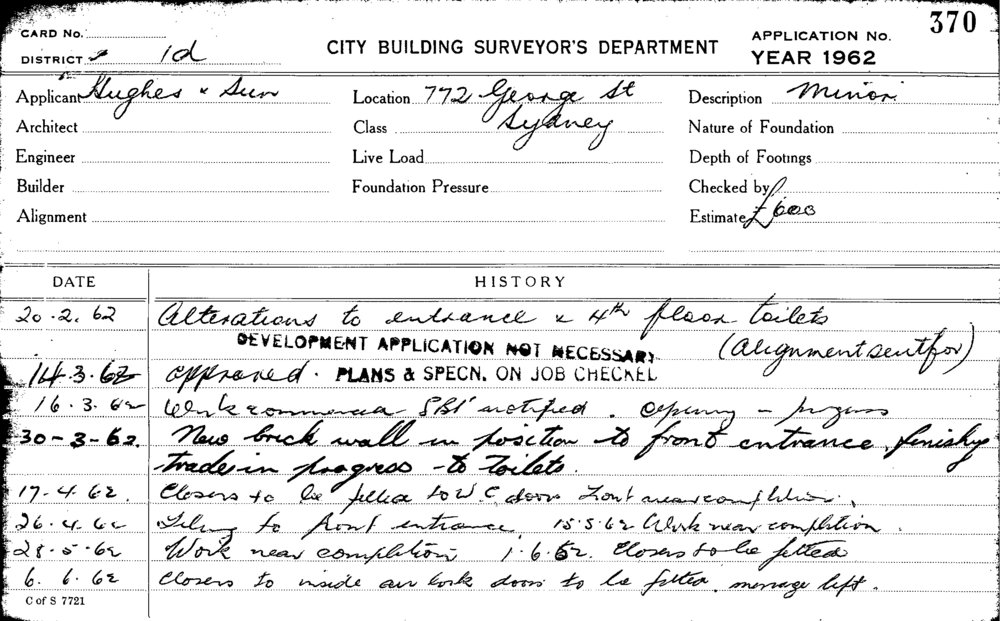 370
CARD No.
CITY BUILDING SURVEYOR'S DEPARTMENT
APPLICATION No.
DISTRICT 1d
YEAR 1962
Applicant Hughes & Sun
Location 772 George St
Sydney
Description Minor
Architect
Class
Nature of Foundation
Engineer
Live Load
Depth of Footings
Builder
Foundation Pressure
Checked by
Alignment
Estimate £600
DATE HISTORY
20.2.62 Alterations to entrance & 4th floor toilets
DEVELOPMENT APPLICATION NOT NECESSARY
(alignment sent for)
14.3.62 approved. PLANS & SPECN. ON JOB CHECKED
16.3.62 Work commenced notified. opening in progress
30-3-62. New brick wall in position to front entrance, finishg
trades in progress to toilets.
17-4.62. Closers to be fitted to W.C doors Front near completion.
26.4.62 Tiling to front entrance 15.5.62 Work near completion.
28.5.62 Work near completion 1.6.62. Closers to be fitted
6.6.62 Closers to inside air lock doors to be fitted. message left.
C of S 7721